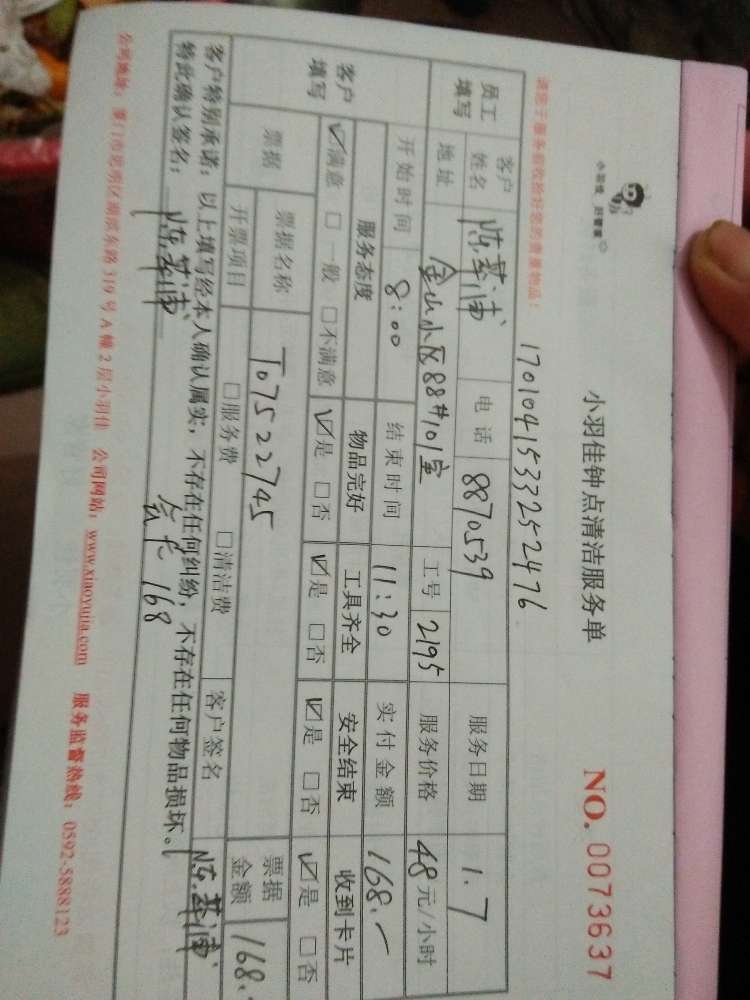 小羽佳 好管家
小羽佳钟点清洁服务单 NO. 0073637
1701041533252476
请您于服务前收拾好您的贵重物品!
员工填写 客户姓名 电话 8870539 服务日期 1.7
地址 金山小区88#101室 工号 2195 服务价格 48元/小时
客户填写 开始时间 8:00 结束时间 11:30 实付金额 168.一
服务态度 物品完好 工具齐全 安全结束 收到卡片
☑满意 □一般 □不满意 ☑是 □否 ☑是 □否 ☑是 □否 ☑是 □否
票据 票据名称 T07522745 票据金额 168.
开票项目 □服务费 □清洁费 客户签名
客户特别承诺:以上填写经本人确认属实,不存在任何纠纷,不存在任何物品损坏。
特此确认签名: 会员 168
公司地址:厦门市思明区湖滨东路319号A幢2层小羽佳 公司网站:www.xiaoyujia.com 服务监督热线:0592-5888123